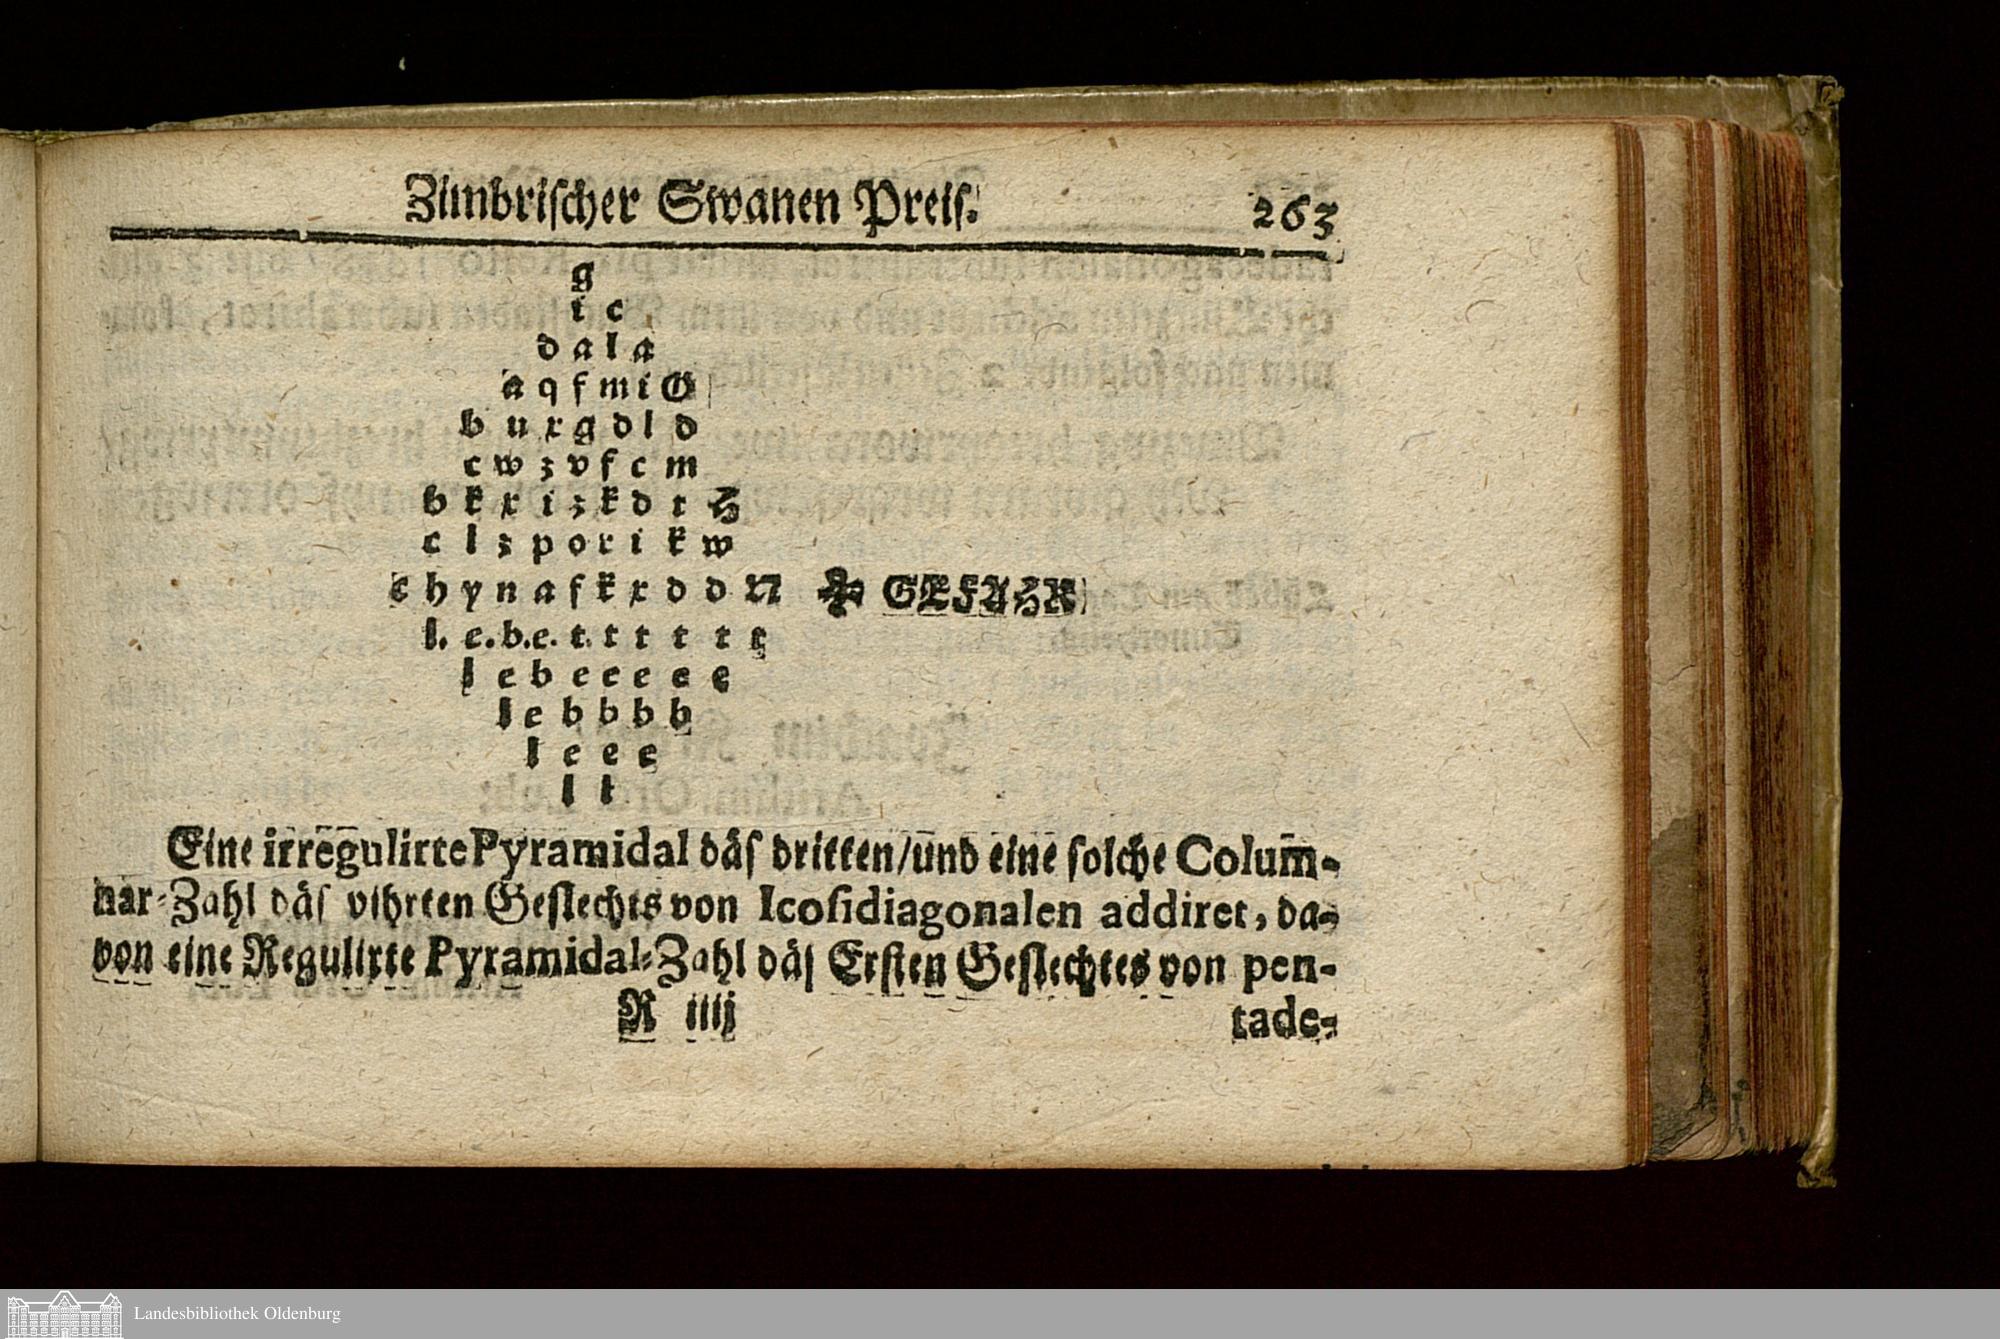 Zimbrischer Swanen Preis. 263
g
t c
d a l a
a q f m i G
b u r g d l d
c w z v f c m
b k r i z k d t H
c l z p o r i k w
c h y n a f k r d d N GEFAHR
l. e. b. e. t. t t t t t
l e b e e e e e
l e b b b b
l e e e
l t
Eine irregulirte Pyramidal däs dritten/und eine solche Colum̄-
nar-Zahl däs vihrten Geslechts von Icosidiagonalen addiret, da-
von eine Regulirte Pyramidal-Zahl däs Ersten Geslechtes von pen-
R iiij tade-
Landesbibliothek Oldenburg